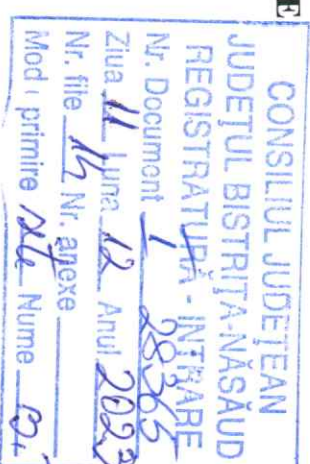 CONSILIUL JUDEȚEAN
JUDEȚUL BISTRIȚA-NĂSĂUD
REGISTRATURĂ - INTRARE
Nr. Document 1 28365
Ziua 11 Luna 12 Anul 2023
Nr. file 14 Nr. anexe
Mod primire Nume